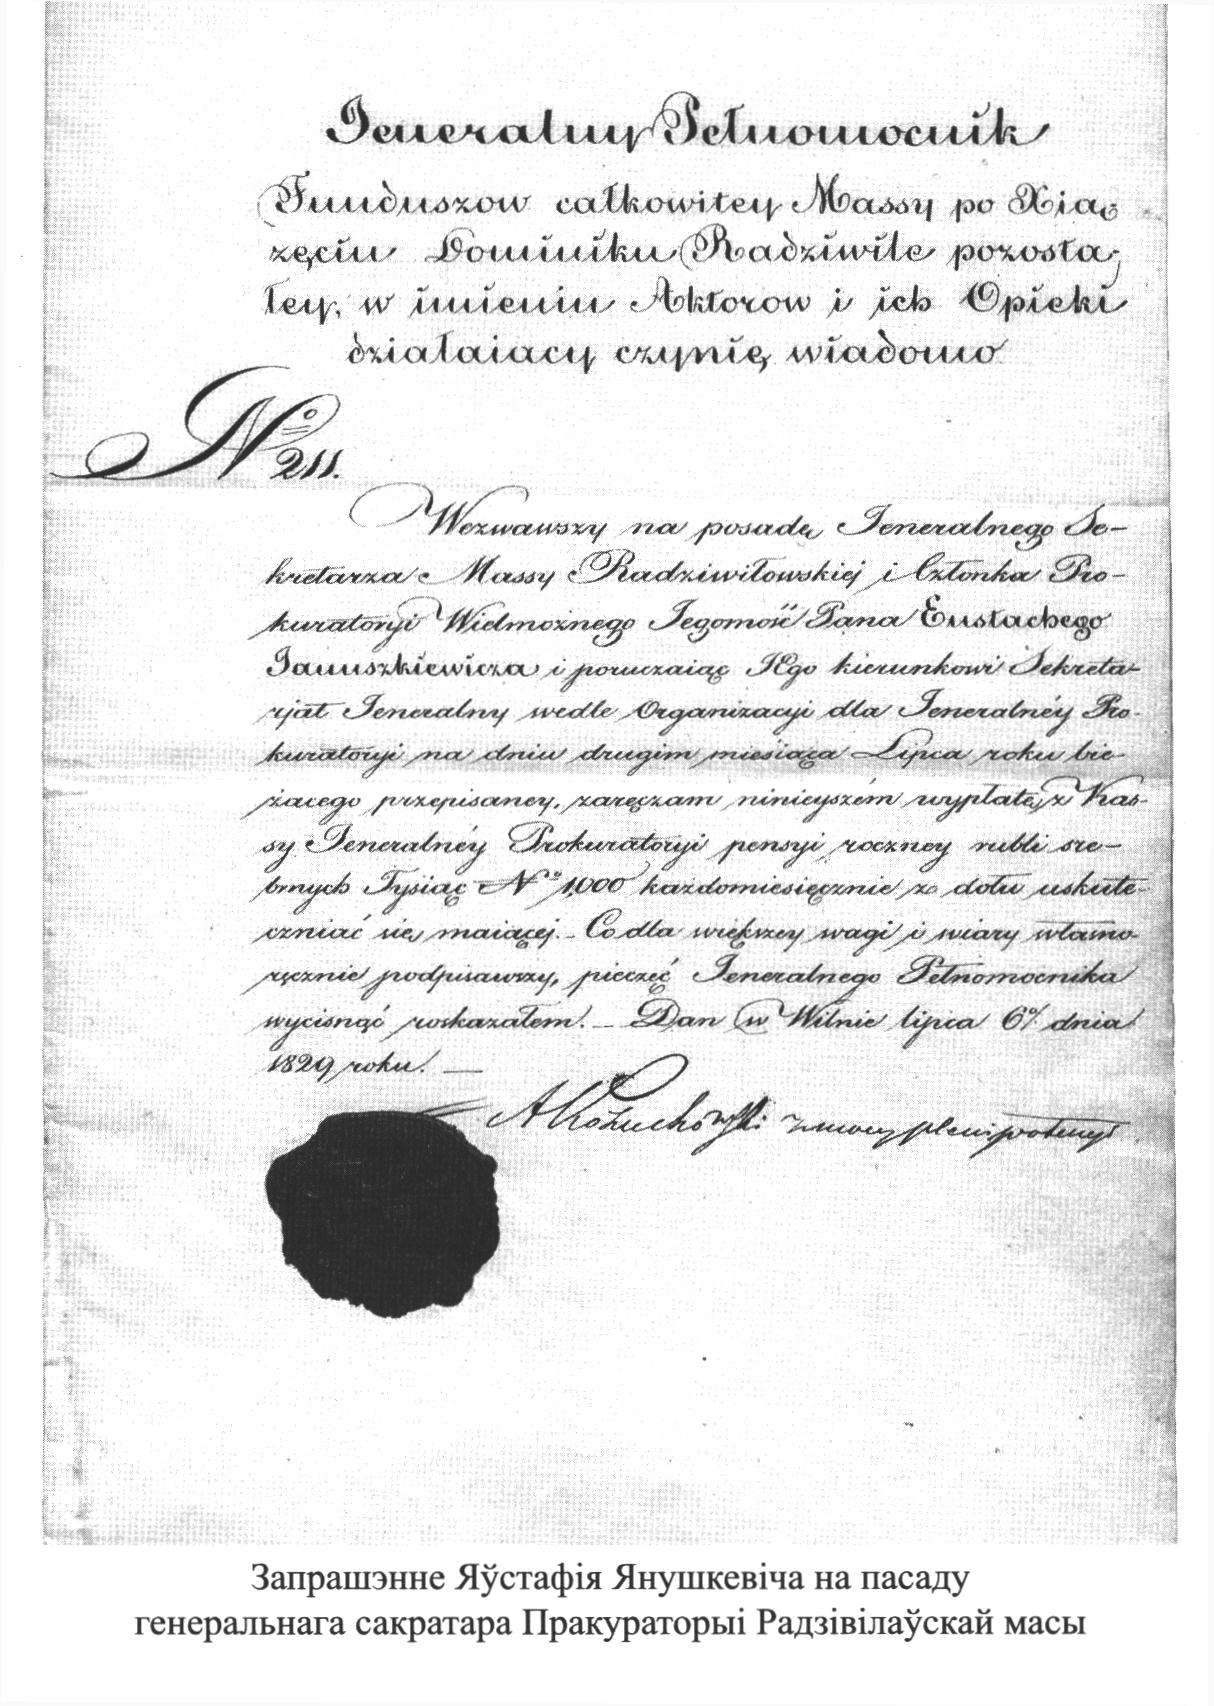 Jeneralny Pełnomocnik
Funduszow całkowitey Massy po Xią-
zęciu Dominiku Radziwile pozosta-
łey, w imieniu Aktorow i ich Opieki
działaiacy czynię wiadomo
No 211.
Wezwawszy na posadę Jeneralnego Se-
kretarza Massy Radziwiłowskiej i Członka Pro-
kuratoryi Wielmożnego Jegomość Pana Eustachego
Januszkiewicza i poruczaiąc JEgo kierunkowi Sekreta-
rjat Jeneralny wedle Organizacyi dla Jeneralnéy Pro-
kuratoryi na dniu drugim miesiąca Lipca roku bie-
żacego przepisaney, zaręczam ninieyszém wypłatę z Kas-
sy Jeneralnéy Prokuratoryi pensyi roczney rubli sre-
brnych Tysiąc No 1,000 każdomiesięcznie z dołu uskute-
czniać się maiącej. Co dla większey wagi i wiary własno-
ręcznie podpisawszy, pieczęć Jeneralnego Pełnomocnika
wycisnąć roskazałem. Dan w Wilnie lipca 6o dnia
1829 roku.
AKożuchowski z mocy plenipotencyi
Запрашэнне Яўстафія Янушкевіча на пасаду
генеральнага сакратара Пракураторыі Радзівілаўскай масы